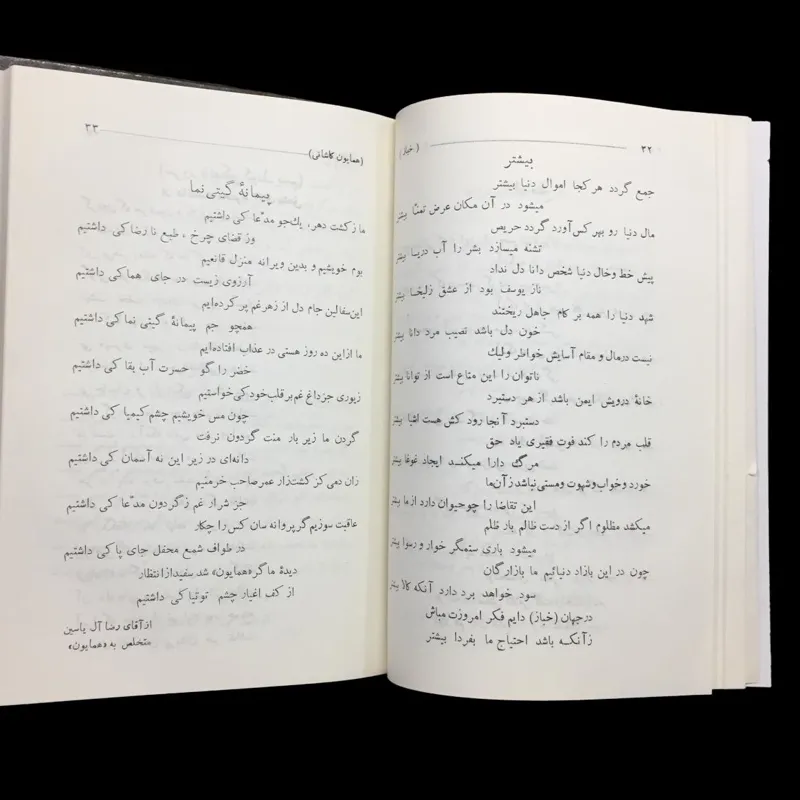 ۳۲ (خباز)
بیشتر
جمع گردد هر کجا اموال دنیا بیشتر
میشود در آن مکان عرض تمنا بیشتر
مال دنیا رو بهر کس آورد گردد حریص
تشنه میسازد بشر را آب دریا بیشتر
پیش خط و خال دنیا شخص دانا دل نداد
ناز یوسف بود از عشق زلیخا بیشتر
شهد دنیا را همه بر کام جاهل ریختند
خون دل باشد نصیب مرد دانا بیشتر
نیست درمال و مقام آسایش خواطر ولیك
ناتوان را این متاع است از توانا بیشتر
خانهٔ درویش ایمن باشد از هر دستبرد
دستبرد آنجا رود کش هست اشیا بیشتر
قلب مردم را کند فوت فقیری یاد حق
مرگ دارا میکنسد ایجاد غوغا بیشتر
خورد و خواب و شهوت و مستی نباشد زآن ما
این تقاضا را چو حیوان دارد از ما بیشتر
میکشد مظلوم اگر از دست ظالم بار ظلم
میشود باری ستمگر خوار و رسوا بیشتر
چون در این بازار دنیائیم ما بازارگان
سود خواهد برد دارد آنکه کالا بیشتر
درجهان (خباز) دایم فکر امروزت مباش
زآنکه باشد احتیاج ما بفردا بیشتر
(همایون کاشانی) ۳۳
پیمانهٔ گیتی نما
ما ز کشت دهر، یك جو مدّعا کی داشتیم
وز قضای چرخ ، طبع نا رضا کی داشتیم
بوم خویشیم و بدین ویرانه منزل قانعیم
آرزوی زیست در جای هما کی داشتیم
این سفالین جام دل از زهر غم پر کرده‌ایم
همچو جم پیمانهٔ گیتی نما کی داشتیم
ما از این ده روز هستی در عذاب افتاده‌ایم
خضر را گو حسرت آب بقا کی داشتیم
زیوری جز داغ غم بر قلب خود کی خواستیم
چون مس خویشیم چشم کیمیا کی داشتیم
گردن ما زیر بار منت گردون نرفت
دانه‌ای در زیر این نه آسمان کی داشتیم
زان دمی کز کشت‌زار عمر صاحب خرمنیم
جز شرار غم ز گردون مدّعا کی داشتیم
عاقبت سوزیم گر پروانه سان کس را چکار
در طواف شمع محفل جای پا کی داشتیم
دیدهٔ ما گر «همایون» شد سفید از انتظار
از کف اغیار چشم توتیا کی داشتیم
از آقای رضا آل یاسین
متخلص به «همایون»